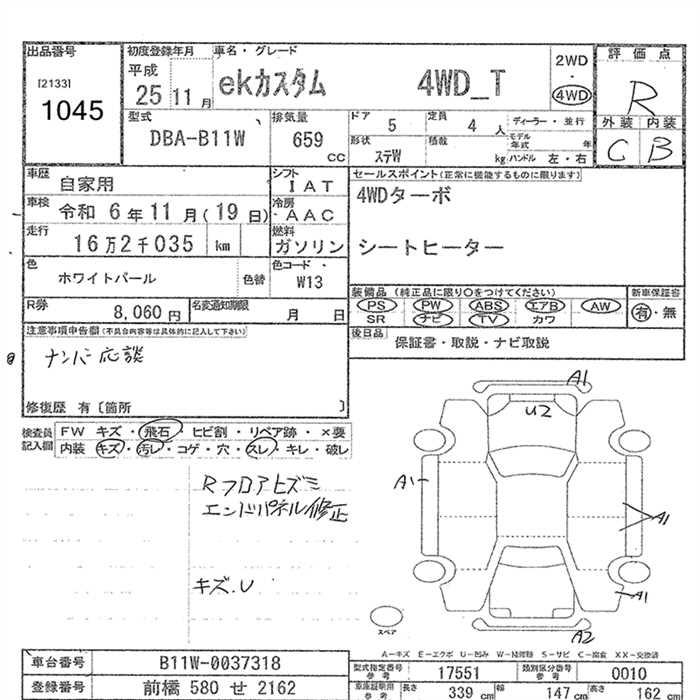 出品番号
[2133]
1045
初度登録年月
平成
25 11 月
車名・グレード
ekカスタム 4WD_T
2WD
・
4WD
評価点
R
外装 内装
C B
型式
DBA-B11W
排気量
659
CC
ドア 5
定員 4 人
ディーラー・並行
形状 ステW
積載 kg
モデル年式 年
ハンドル 左・右
車歴 自家用
シフト IAT
車検 令和 6年 11月(19日)
冷房 AAC
走行 16万2千035 km
燃料 ガソリン
色 ホワイトパール 色替
色コード W13
R券 8,060 円
名変通知期限 月 日
セールスポイント(正常に機能するものに限ります)
4WDターボ
シートヒーター
装備品(純正品に限り○をつけてください)
PS PW ABS エアB AW
SR ナビ TV カワ
新車保証書
有・無
後日品 保証書・取説・ナビ取説
注意事項申告欄(不具合内容等は具体的に記入して下さい)
ナンバー応談
修復歴 有〔箇所 〕
検査員記入欄
FW キズ・飛石・ヒビ割・リペア跡・×要
内装 キズ・汚レ・コゲ・穴・スレ・キレ・破レ
Rフロアヒズミ
エンドパネル修正
キズ.U
A1
U2
A1
A1
A1
A2
スペア
A-キズ E-エクボ U-凹み W-補修跡 S-サビ C-腐食 XX-交換済
車台番号 B11W-0037318
登録番号 前橋 580 せ 2162
型式指定番号 参考 17551
類別区分番号 参考 0010
車庫証明用 参考 長さ 339 cm 幅 147 cm 高さ 162 cm